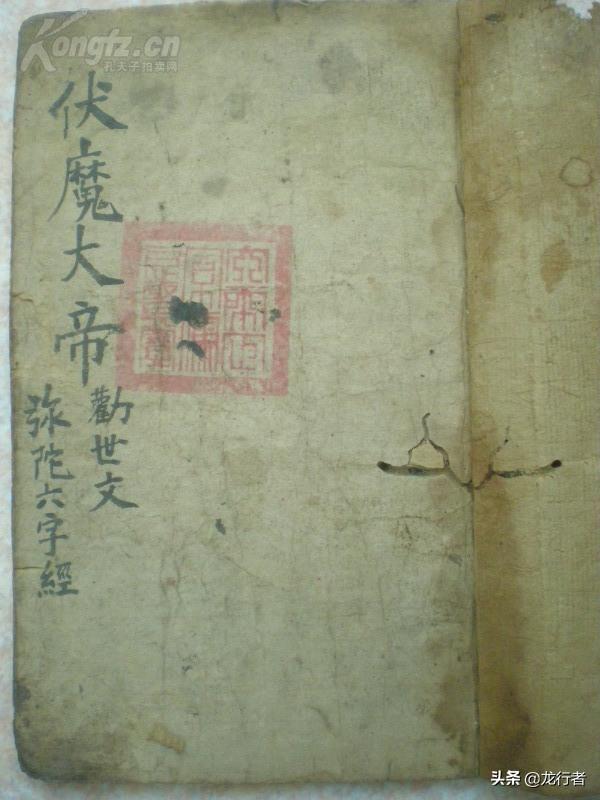 Kongfz.cn
孔夫子拍卖网
伏魔大帝
勸世文
弥陀六字經
头条 @龙行者